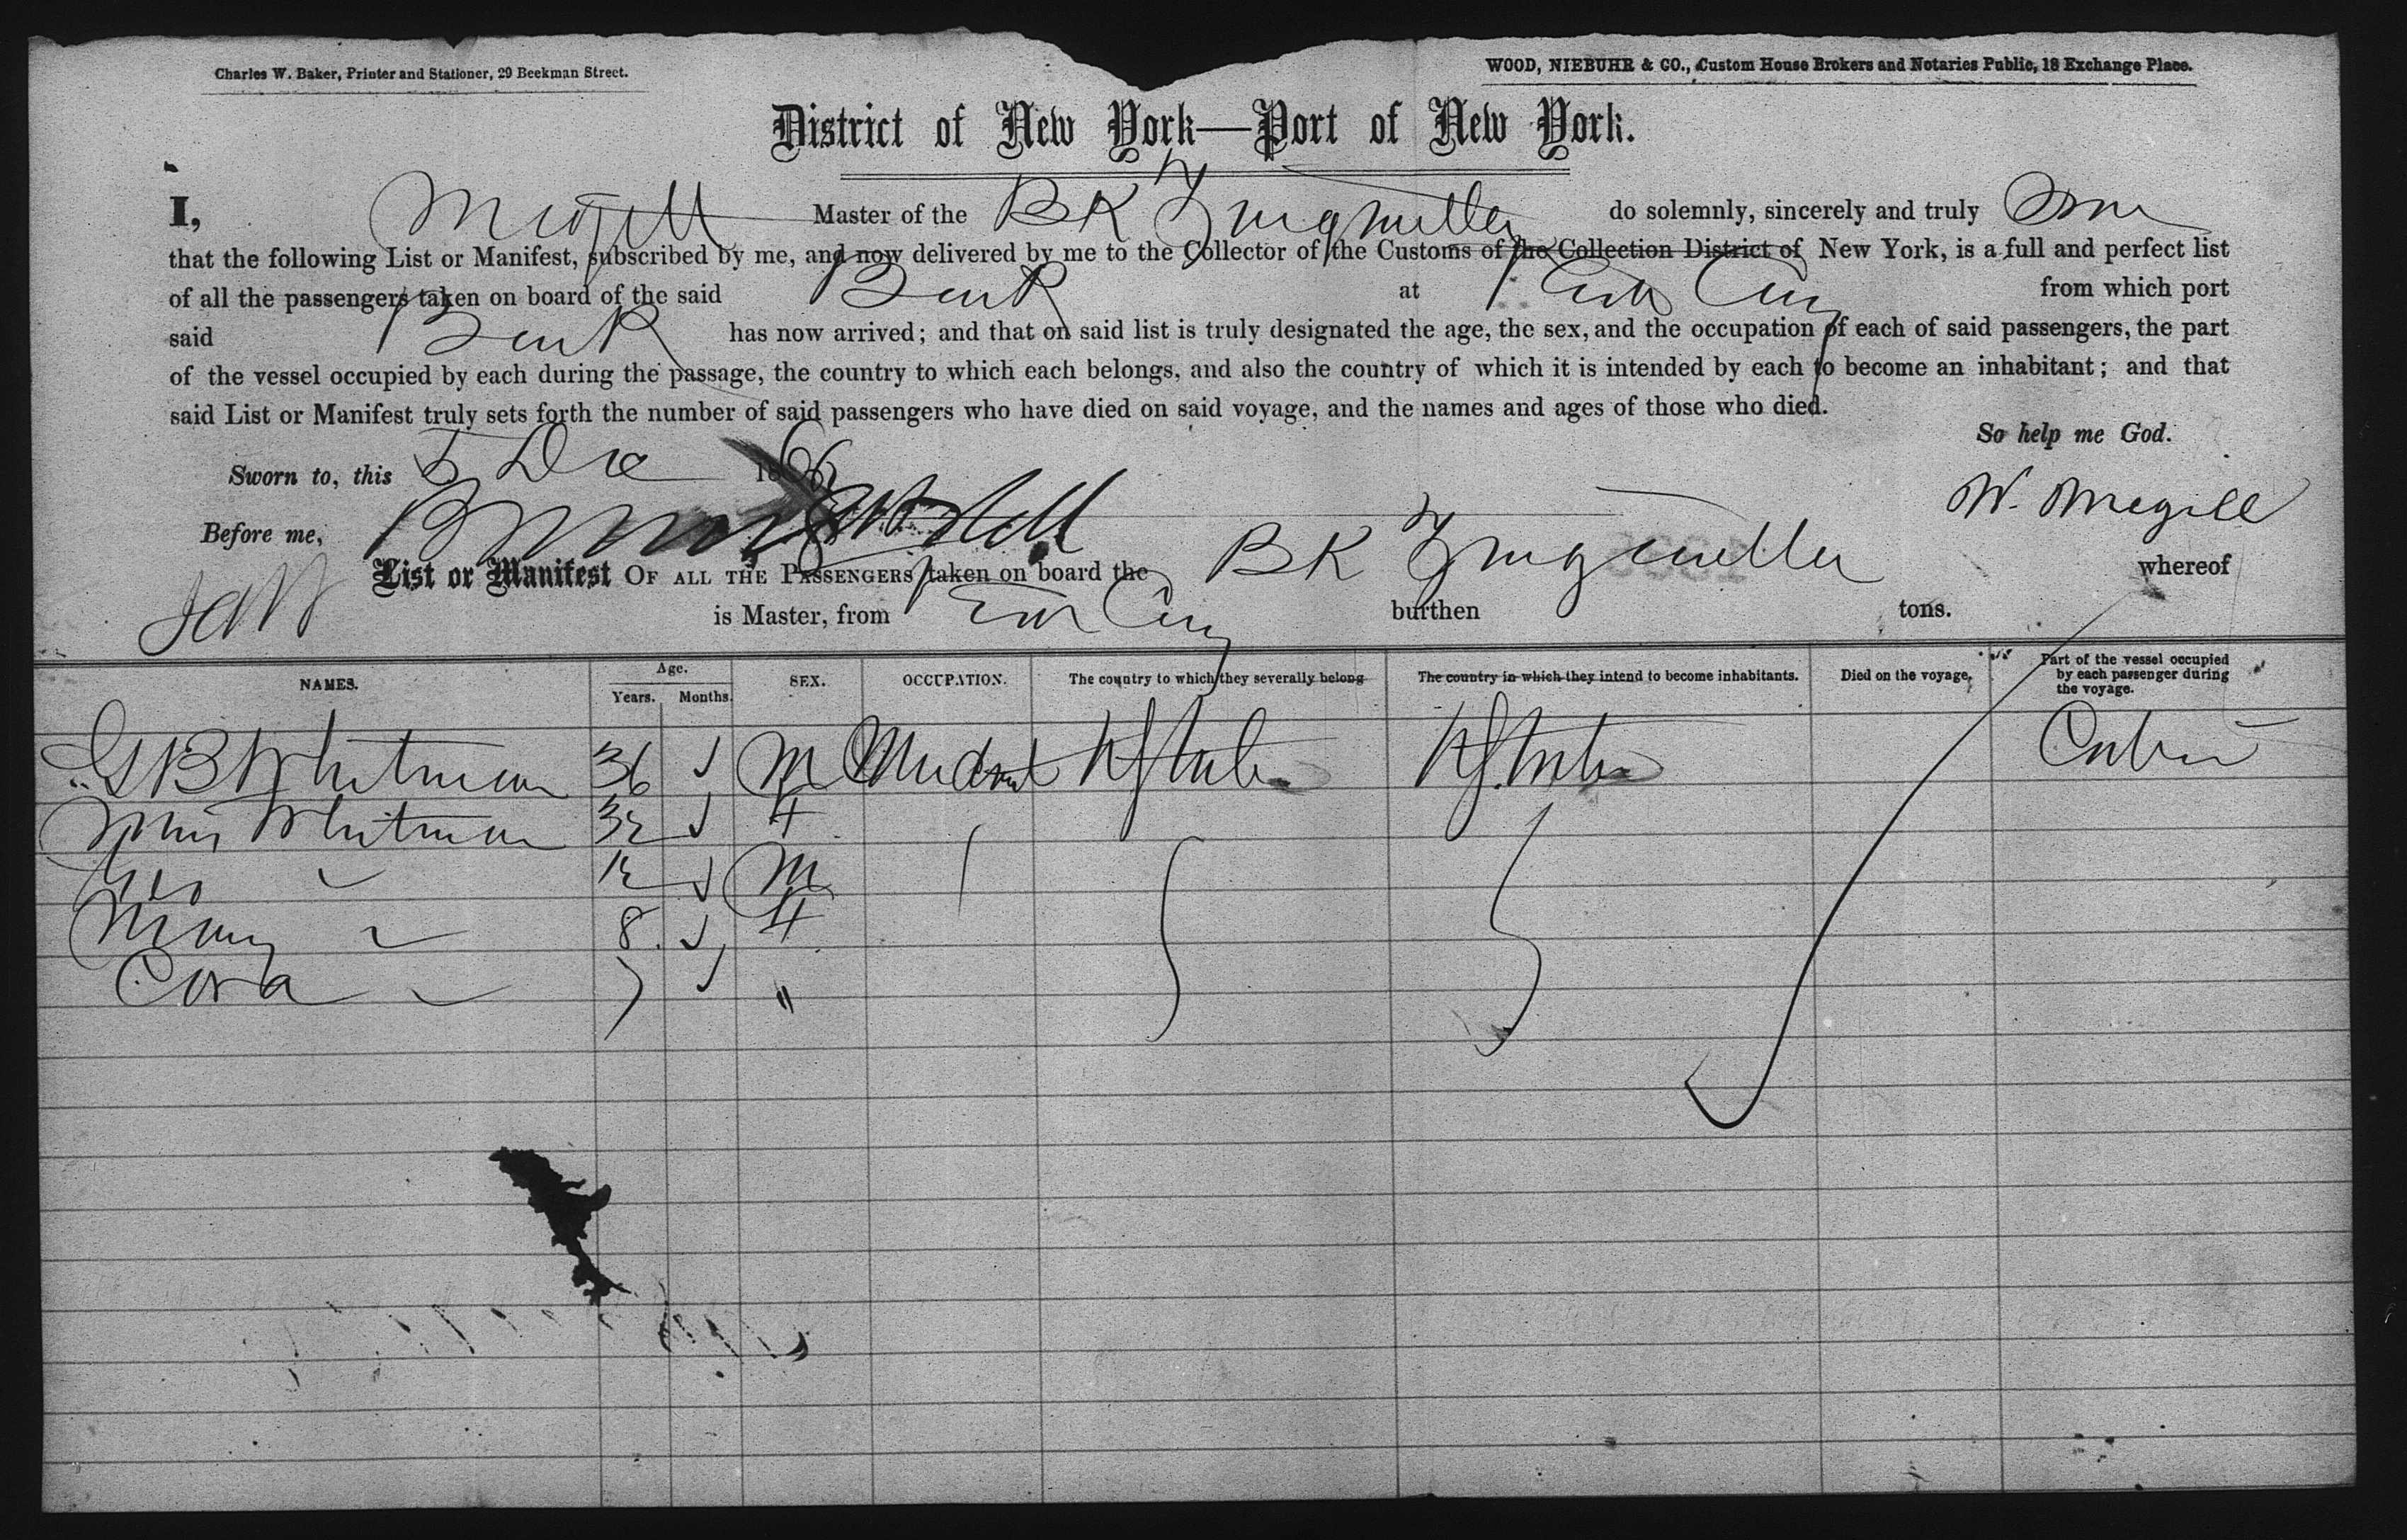 Charles W. Baker, Printer and Stationer, 29 Beekman Street.
WOOD, NIEBUHR & CO., Custom House Brokers and Notaries Public, 18 Exchange Place.
District of New York—Port of New York.
I, Megill Master of the BK do solemnly, sincerely and truly
that the following List or Manifest, subscribed by me, and now delivered by me to the Collector of the Customs of the Collection District of New York, is a full and perfect list
of all the passengers taken on board of the said Bark at from which port
said Bark has now arrived; and that on said list is truly designated the age, the sex, and the occupation of each of said passengers, the part
of the vessel occupied by each during the passage, the country to which each belongs, and also the country of which it is intended by each to become an inhabitant; and that
said List or Manifest truly sets forth the number of said passengers who have died on said voyage, and the names and ages of those who died.
So help me God.
Sworn to, this 5 Dec 1866
W. Megill
Before me,
List or Manifest OF ALL THE PASSENGERS taken on board the BK whereof
is Master, from burthen tons.
NAMES. Age. Years. Months. SEX. OCCUPATION. The country to which they severally belong The country in which they intend to become inhabitants. Died on the voyage, Part of the vessel occupied by each passenger during the voyage.
G B Whitman 36 M Cabin
Whitman 32 F
Geo 12 M
Mary 8 F
Cora 7 "